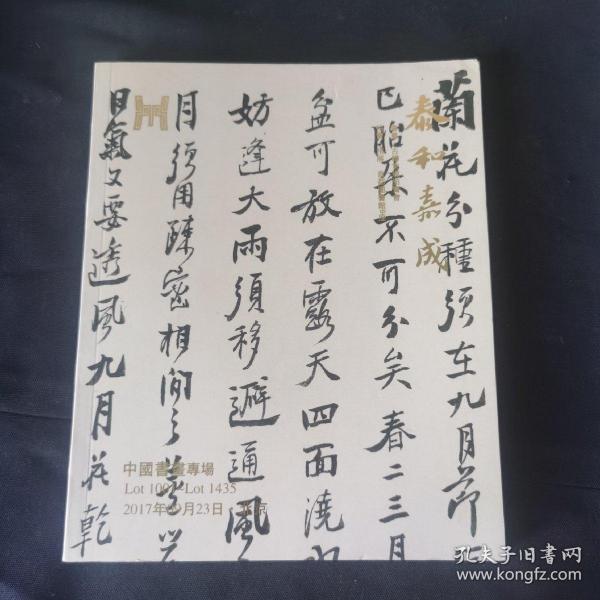 蘭花分種須在九月節
已胎朵不可分矣春二三月
盆可放在露天四面澆
妨逢大雨須移避通風
月須用疎密相間之
日氣又要透風九月花乾
泰和嘉成
中國書畫專場
2017年09月23日·北京
孔夫子旧书网
www.kongfz.com